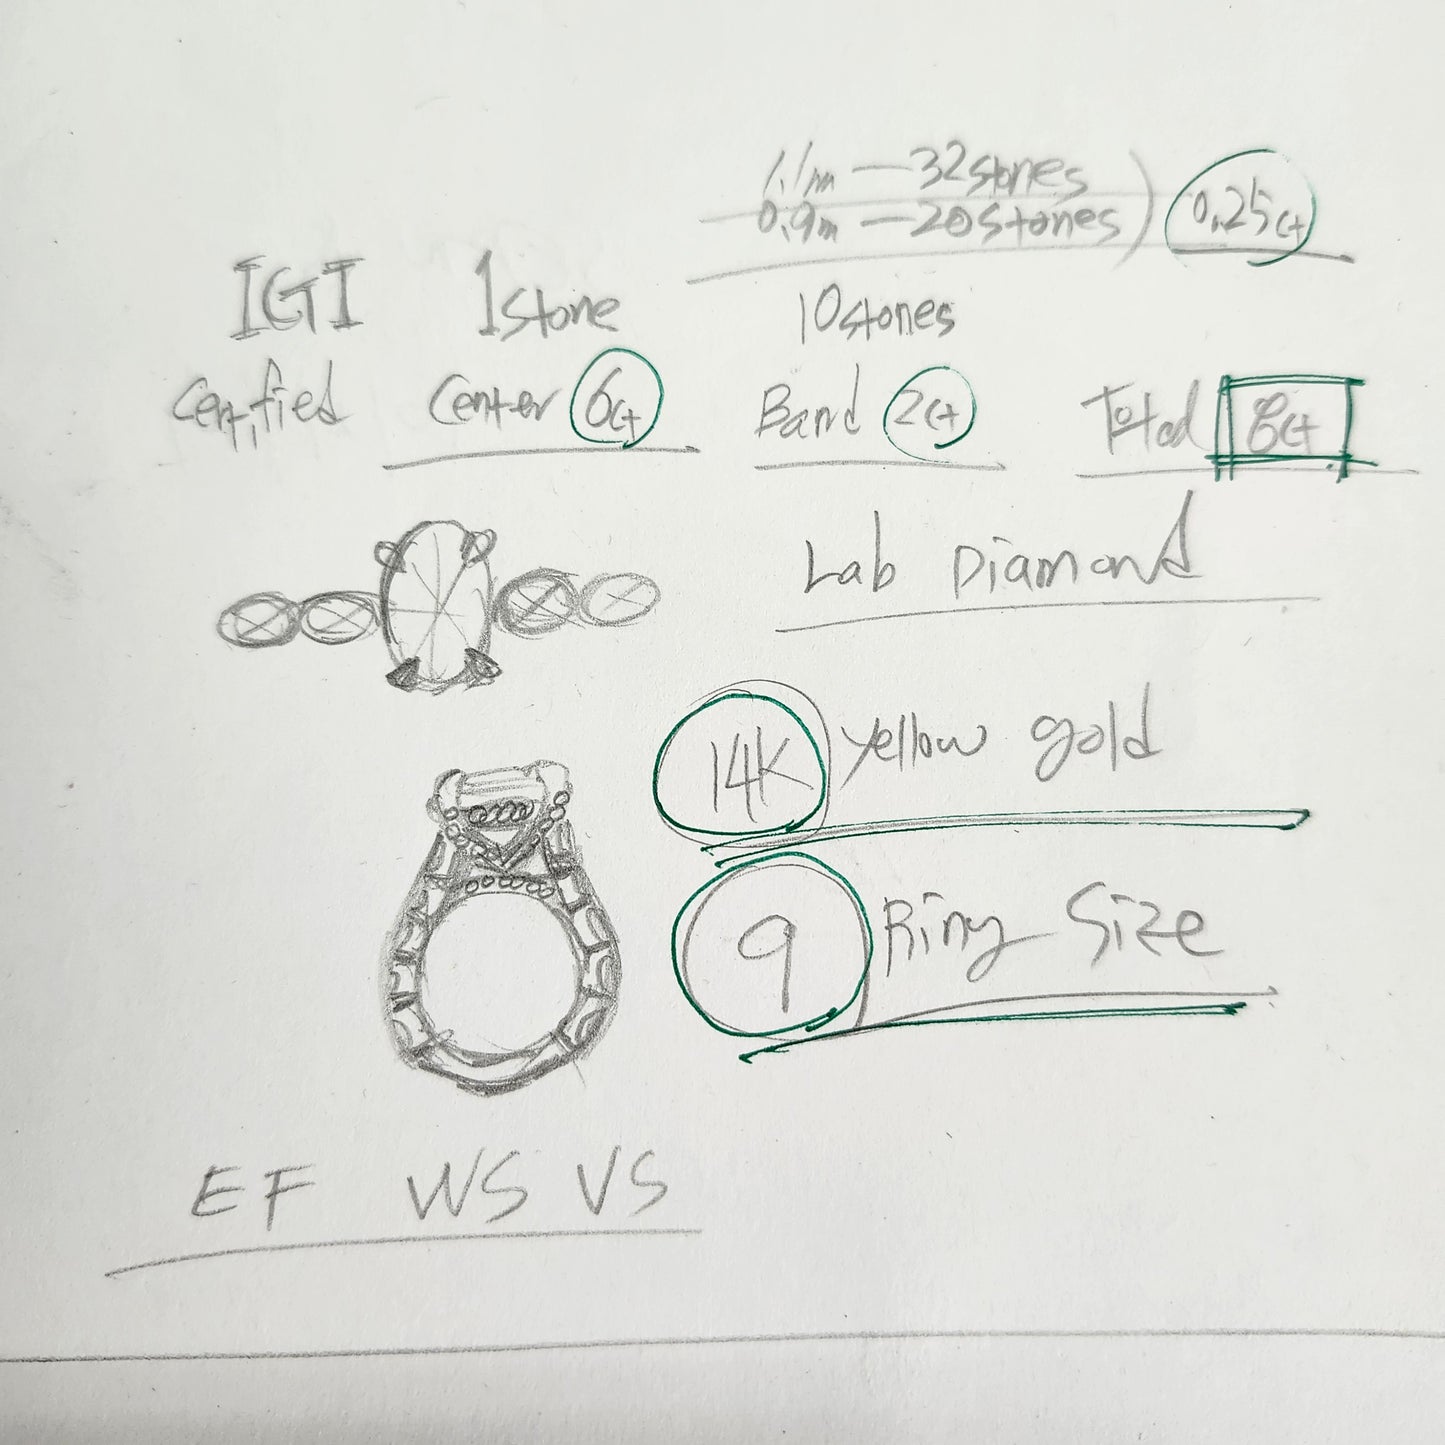 1.1m — 32stones
0.9m — 20stones) 0.25ct
IGI 1stone 10stones
Certified Center 6ct Band 2ct Total 8ct
Lab Diamond
14K yellow gold
9 Ring Size
EF VVS VS